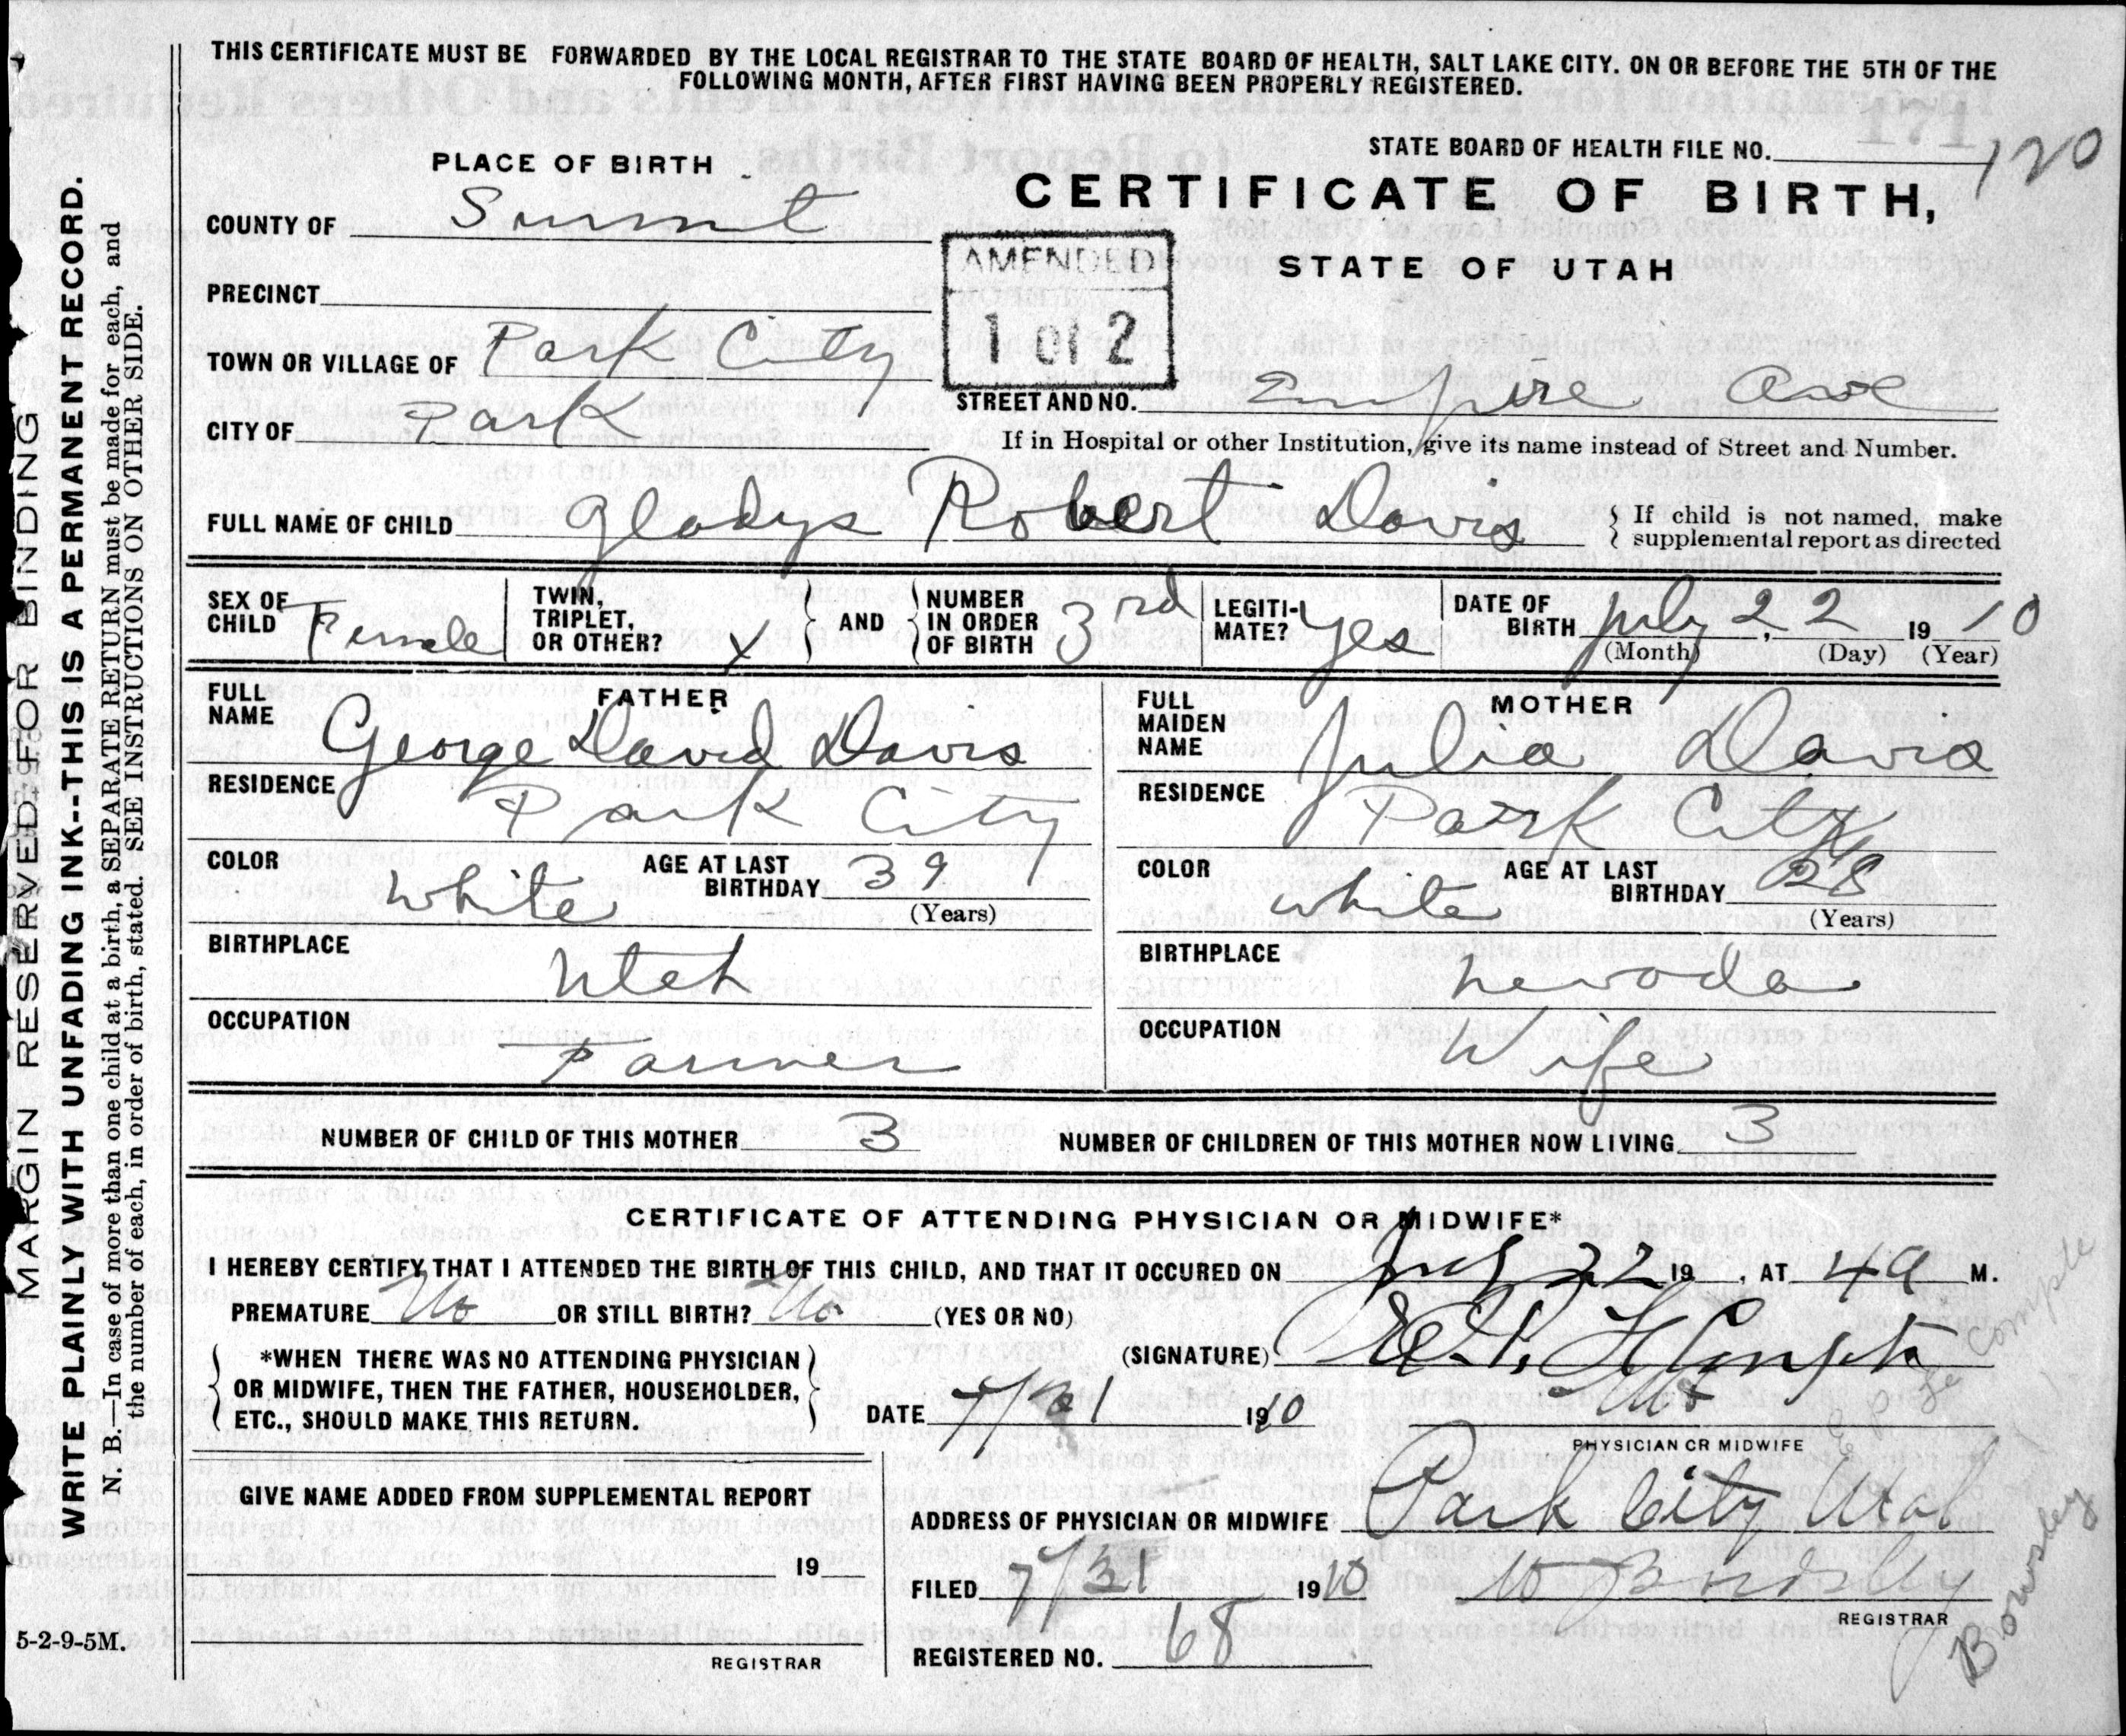 THIS CERTIFICATE MUST BE FORWARDED BY THE LOCAL REGISTRAR TO THE STATE BOARD OF HEALTH, SALT LAKE CITY. ON OR BEFORE THE 5TH OF THE
FOLLOWING MONTH, AFTER FIRST HAVING BEEN PROPERLY REGISTERED.
STATE BOARD OF HEALTH FILE NO. 120
PLACE OF BIRTH
CERTIFICATE OF BIRTH,
STATE OF UTAH
COUNTY OF Summit
AMENDED
1 of 2
PRECINCT
TOWN OR VILLAGE OF Park City
STREET AND NO. Empire Ave
CITY OF Park
If in Hospital or other Institution, give its name instead of Street and Number.
FULL NAME OF CHILD Gladys Robert Davis
{ If child is not named, make
{ supplemental report as directed
SEX OF CHILD Female
TWIN, TRIPLET, OR OTHER? x } AND { NUMBER IN ORDER OF BIRTH 3rd
LEGITI-MATE? yes
DATE OF BIRTH July 22, 1910
(Month) (Day) (Year)
FATHER
FULL NAME George David Davis
RESIDENCE Park City
COLOR white AGE AT LAST BIRTHDAY 39
(Years)
BIRTHPLACE Utah
OCCUPATION Farmer
MOTHER
FULL MAIDEN NAME Julia Davis
RESIDENCE Park City
COLOR white AGE AT LAST BIRTHDAY 28
(Years)
BIRTHPLACE Nevada
OCCUPATION Wife
NUMBER OF CHILD OF THIS MOTHER 3 NUMBER OF CHILDREN OF THIS MOTHER NOW LIVING 3
CERTIFICATE OF ATTENDING PHYSICIAN OR MIDWIFE*
I HEREBY CERTIFY THAT I ATTENDED THE BIRTH OF THIS CHILD, AND THAT IT OCCURED ON July 22 19 , AT 4 a M.
PREMATURE No OR STILL BIRTH? No (YES OR NO)
*WHEN THERE WAS NO ATTENDING PHYSICIAN
OR MIDWIFE, THEN THE FATHER, HOUSEHOLDER,
ETC., SHOULD MAKE THIS RETURN.
(SIGNATURE)
DATE 7/31 1910
PHYSICIAN OR MIDWIFE
GIVE NAME ADDED FROM SUPPLEMENTAL REPORT
19
REGISTRAR
ADDRESS OF PHYSICIAN OR MIDWIFE Park City Utah
FILED 7/31 1910
REGISTRAR
REGISTERED NO. 68
5-2-9-5M.
MARGIN RESERVED FOR BINDING
WRITE PLAINLY WITH UNFADING INK--THIS IS A PERMANENT RECORD.
N. B.—In case of more than one child at a birth, a SEPARATE RETURN must be made for each, and
the number of each, in order of birth, stated. SEE INSTRUCTIONS ON OTHER SIDE.